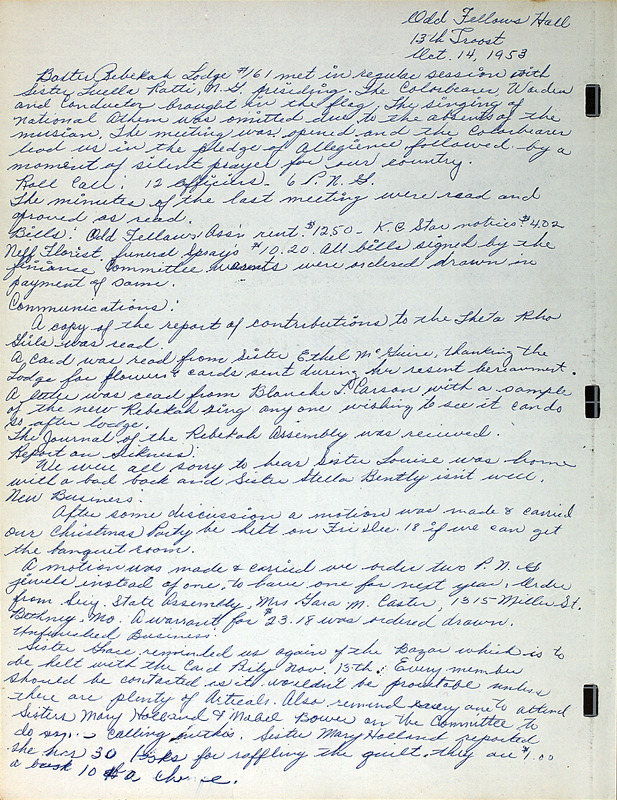 Odd Fellows Hall
13th Troost
Oct. 14, 1953
Baxter Rebekah Lodge #161 met in regular session with
Sister Luella Ratti, N.G. presiding. The Colorbearer, Warden
and Conductor brought in the flag, The singing of
National Athem was omitted due to the absents of the
musian. The meeting was opend and the Colorbearer
lead us in the pledge of Allegience followed by a
moment of silent prayer for our country.
Roll Call: 12 Officers - 6 P.N.G.
The minutes of the last meeting were read and
aproved as read.
Bills: Odd Fellows Ass'n rent $12.50 - K.C Star notices $4.02
Neff Florist funeral Spray's $10.20. All bills signed by the
finiance Committee were ordered drawn in
payment of same.
Communications:
A copy of the report of contributions to the Theta Rho
Girls was read.
A card was read from Sister Ethel McGuire, thanking the
Lodge for flowers & cards sent during her resent bereavment.
A letter was read from Blanche L. Carson with a sample
of the new Rebekah ring any one wishing to see it can do
so after lodge.
The Journal of the Rebekah Assembly was recieved.
Report on Sickness:
We were all sorry to hear Sister Louise was home
with a bad back and Sister Stella Bently isn't well.
New Business:
After some discussion a motion was made & carried
our Christmas Party be helt on Fri Dec. 18 if we can get
the banquit room.
A motion was made & carried we order two P.N.G
jewels instead of one, to have one for next year. Order
from Secy. State Assembly, Mrs Zara M. Caster, 1315 Miller St.
Mo. A warrant for $23.18 was ordered drawn.
Unfinished Business:
Sister Grace reminded us again of the Bazar which is to
be helt with the Card Party Nov. 13th. Every member
should be contacted as it wouldn't be profitable unless
there are plenty of Articals. Also remind every one to attend
Sisters Mary Holland & Mabel Bower on the Committee to
do calling on this. Sister Mary Holland reported
she has 30 books for raffling the quilt. they are $1.00
a book 10¢ a chance.